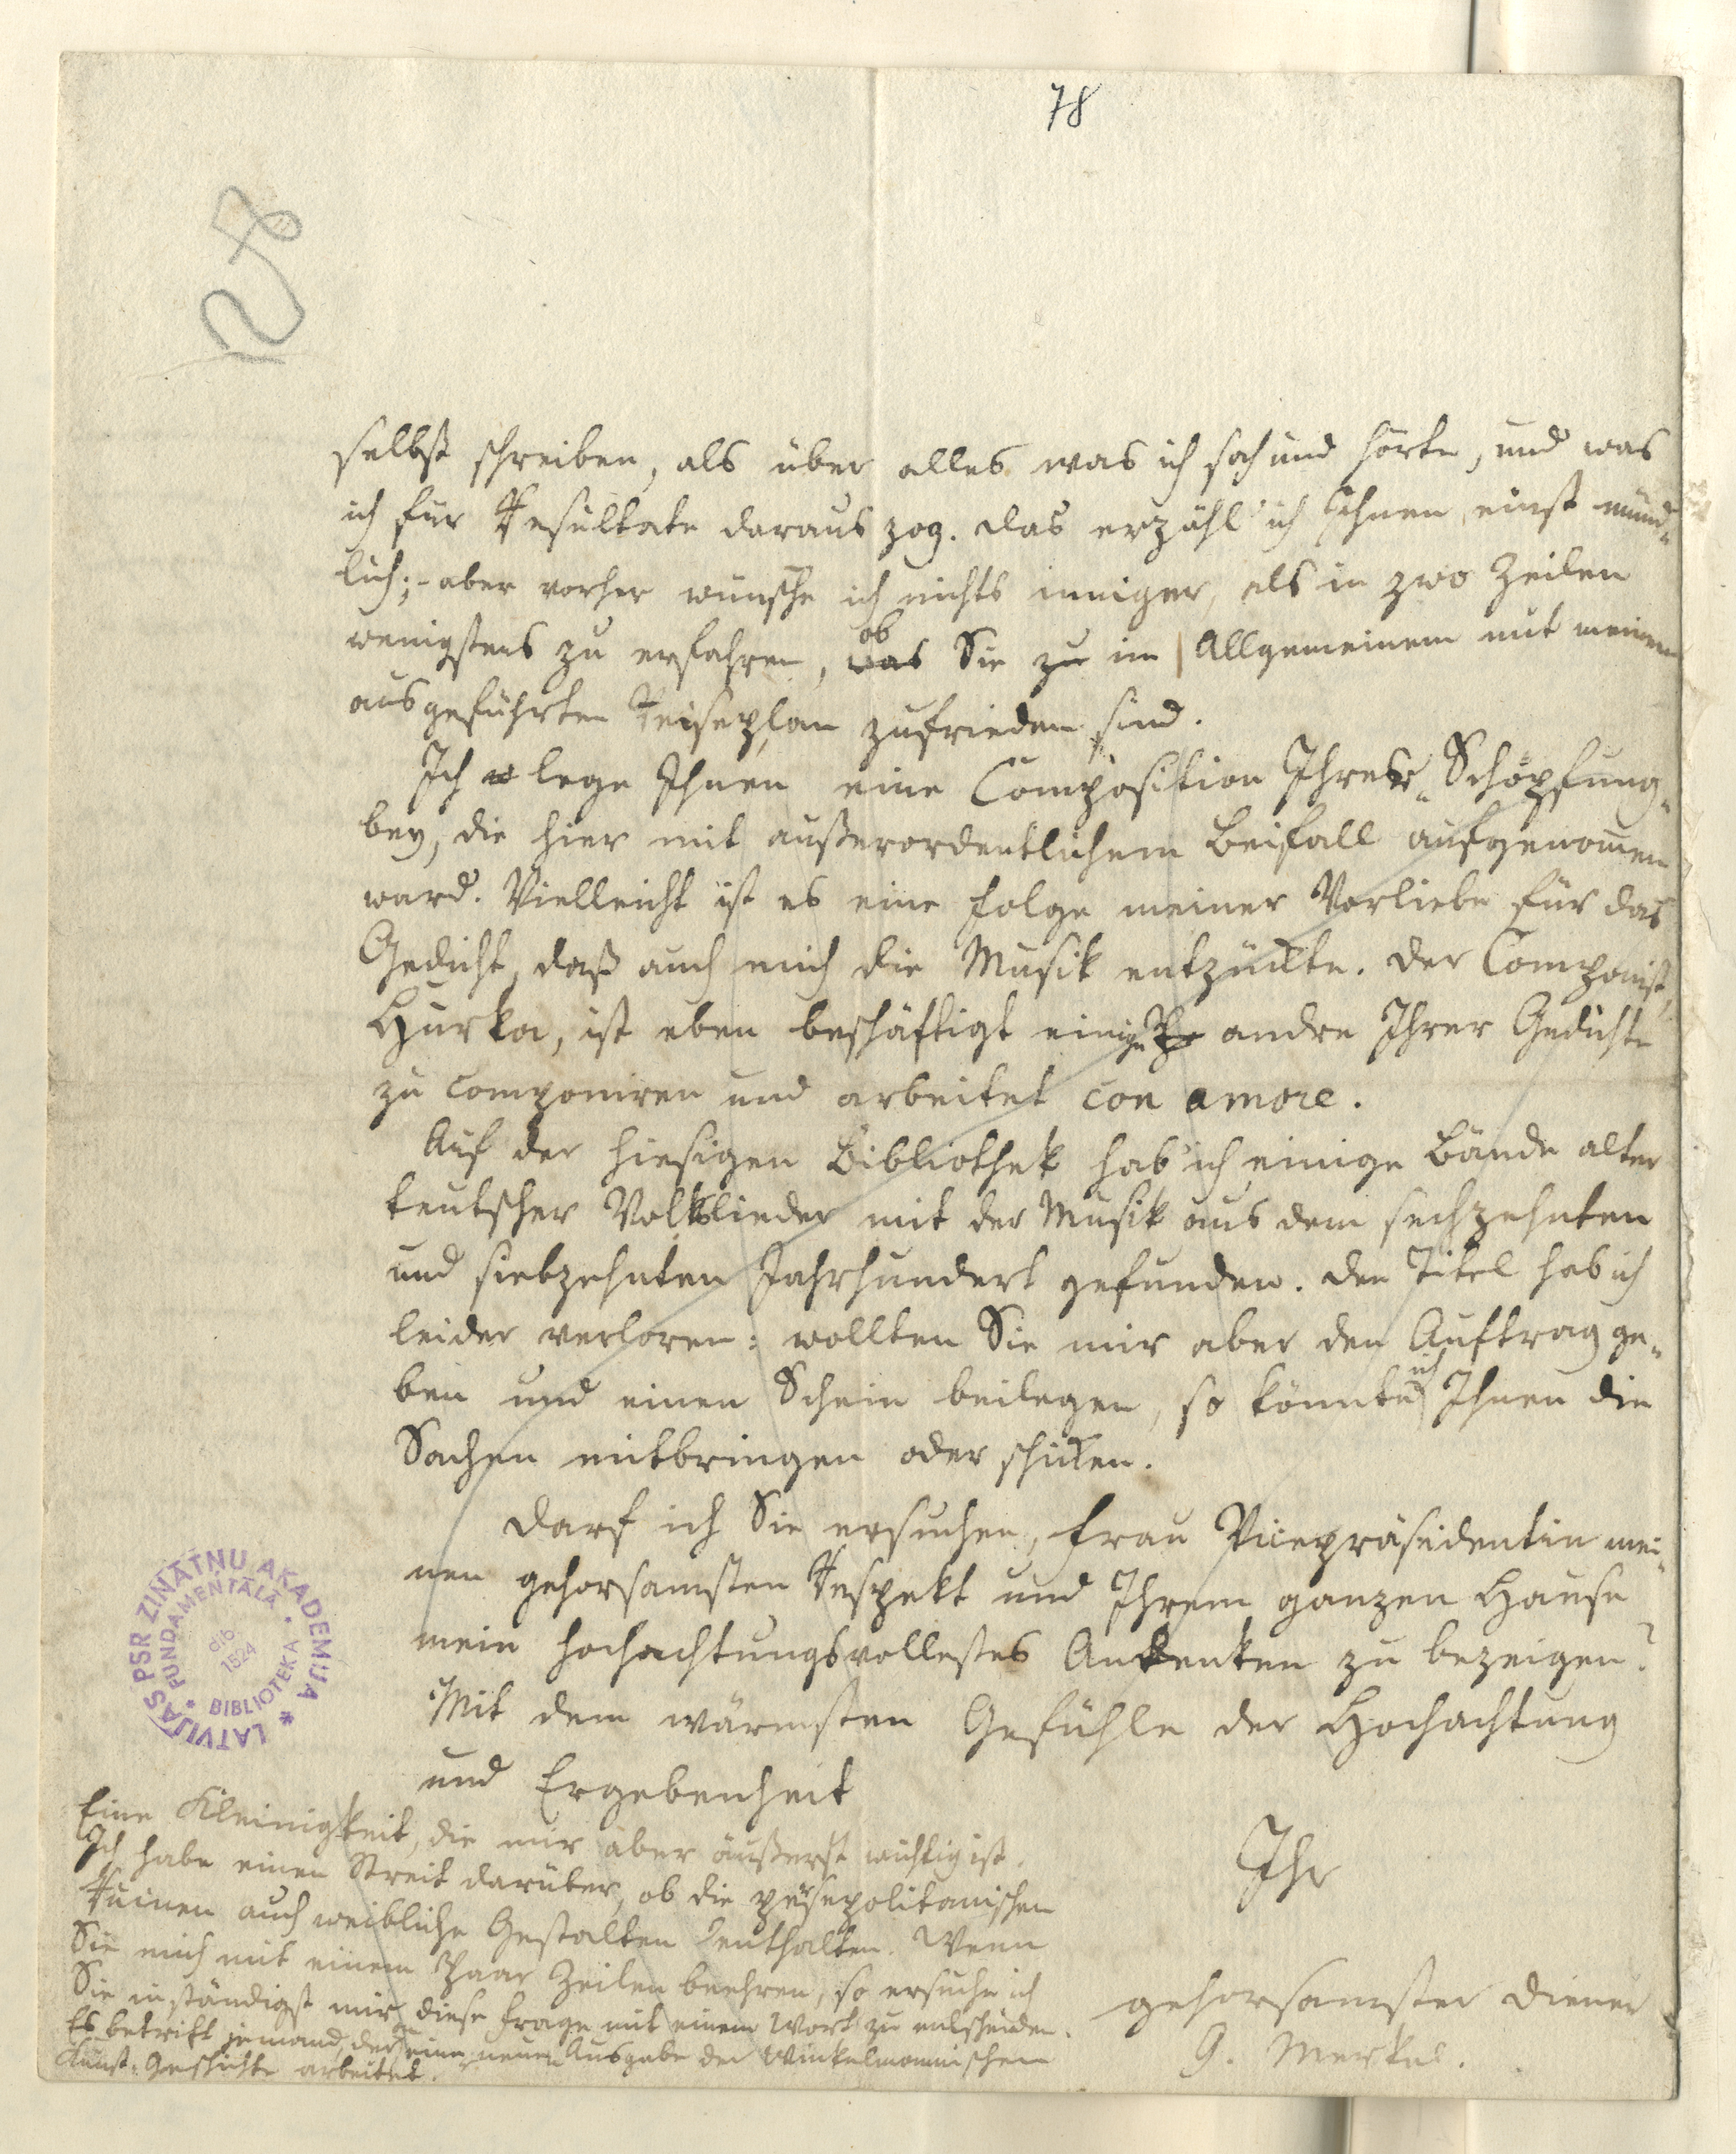 78
selbst schreiben, als über alles was ich sah und hörte, und was
ich für Resultate daraus zog. Das erzähl' ich Ihnen einst münd-
lich; – aber vorher wünsche ich nichts inniger, als in zwo Zeilen
wenigstens zu erfahren, was ob Sie zu im Allgemeinem mit meinem
ausgeführten Reiseplan zufrieden sind.
Ich lege Ihnen eine Composition Ihrer „Schöpfung“
bey, die hier mit außerordentlichem Beifall aufgenommen
ward. Vielleicht ist es eine Folge meiner Vorliebe für das
Gedicht, daß auch mich die Musik entzückte. Der Componist,
Hurka, ist eben beschäftigt einige andre Ihrer Gedichte
zu componiren und arbeitet con amore.
Auf der hiesigen Bibliothek hab' ich einige Bände alter
teutscher Volkslieder mit der Musik aus dem sechzehnten
und siebzehnten Jahrhundert gefunden. Den Titel hab ich
leider verloren: wollten Sie mir aber den Auftrag ge-
ben und einen Schein beilegen, so könnte ich Ihnen die
Sachen mitbringen oder schicken.
Darf ich Sie ersuchen, Frau Vicepräsidentin mei-
nen gehorsamsten Respekt und Ihrem ganzen Hause
mein hochachtungsvollestes Andenken zu bezeigen?
Mit dem wärmsten Gefühle der Hochachtung
und Ergebenheit
Ihr
gehorsamster Diener
G. Merkel.
Eine Kleinigkeit, die mir aber äußerst wichtig ist.
Ich habe einen Streit darüber, ob die persepolitanischen
Ruinen auch weibliche Gestalten enthalten. Wenn
Sie mich mit einem Paar Zeilen beehren, so ersuche ich
Sie inständigst mir diese Frage mit einem Wort zu entscheiden.
Es betrift jemand, der an einer neuen Ausgabe der Winkelmannischen
Kunst-Geschichte arbeitet.
LATVIJAS PSR ZINĀTŅU AKADEMIJA
FUNDAMENTĀLĀ BIBLIOTEKA
d/b
1524